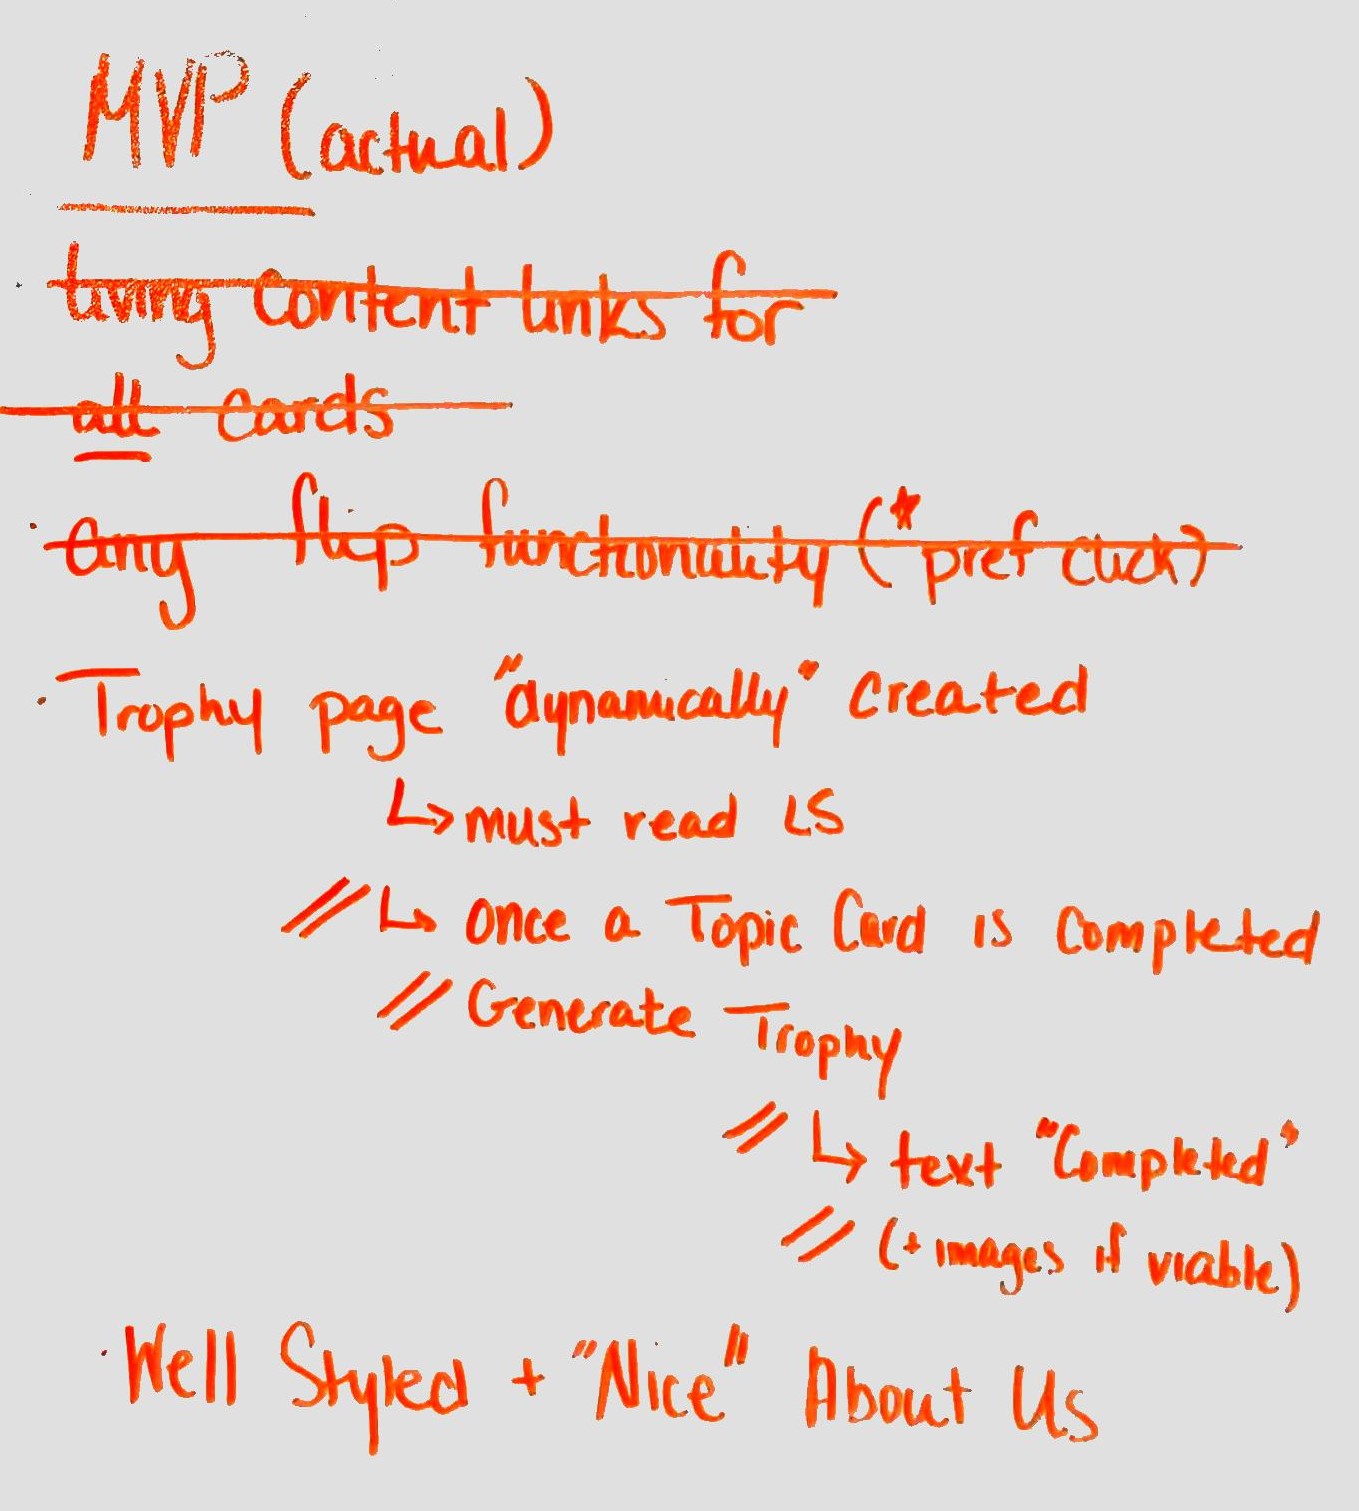 MVP (actual)
· living content links for
all cards
· any flip functionality (*pref click)
· Trophy page "dynamically" created
↳ must read LS
// ↳ once a Topic Card is completed
// Generate Trophy
// ↳ text "Completed"
// (+ images if viable)
· Well Styled + "Nice" About Us